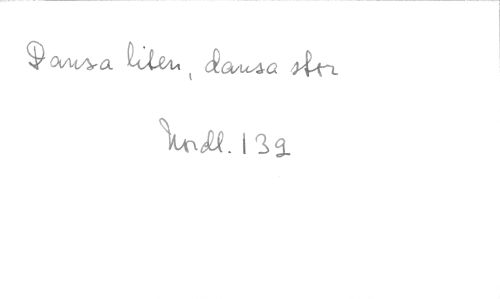 Dansa liten, dansa stor
Nordl. 139